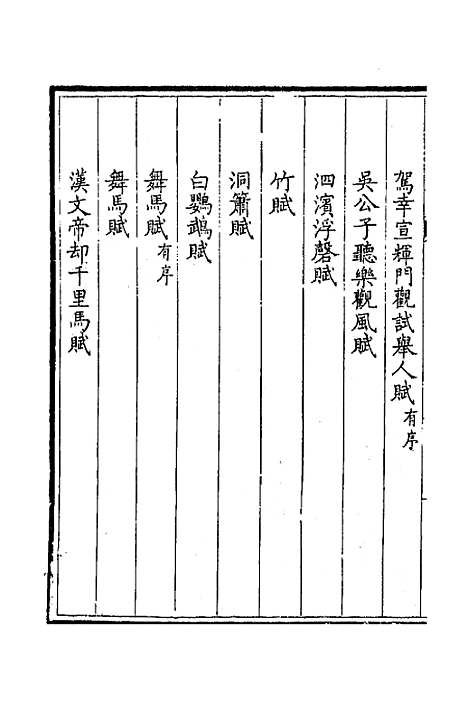 駕幸宣輝門觀試舉人賦有序
吳公子聽樂觀風賦
泗濱浮磬賦
竹賦
洞簫賦
白鸚鵡賦
舞馬賦有序
舞馬賦
漢文帝却千里馬賦